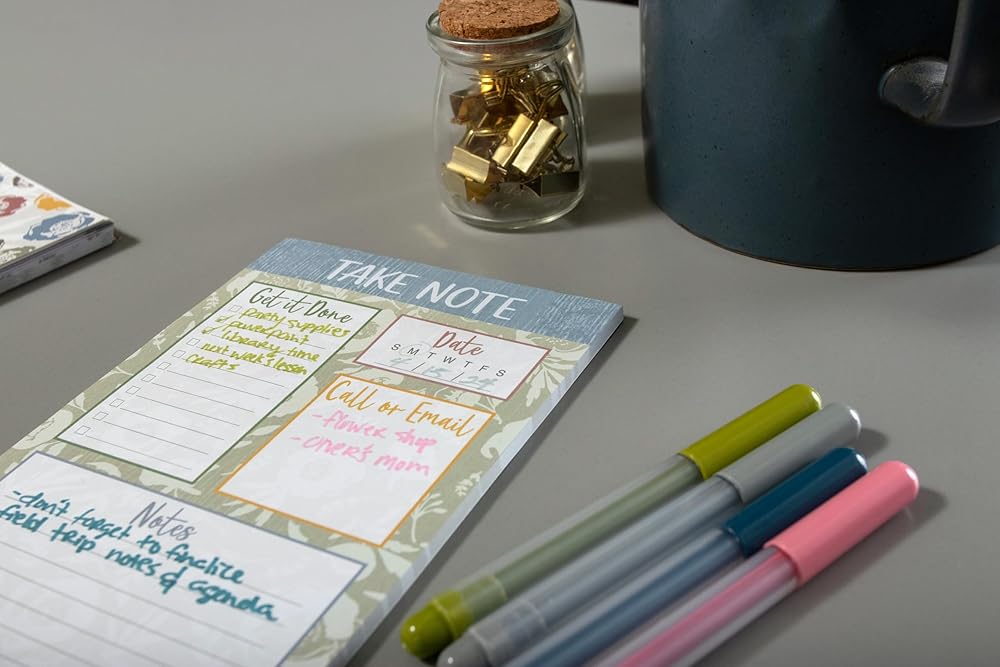 TAKE NOTE
Get it Done
party supplies
powerpoint
library time
next week's lesson
crafts
Date
S M T W T F S
4/15/24
Call or Email
- flower shop
- Cher's mom
Notes
- don't forget to finalize
field trip notes & agenda